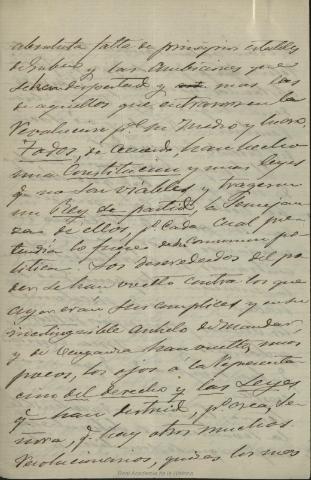 absoluta falta de principios estables
de Gobier y las ambiciones que
se han despertado y mas las
de aquellos que entraron en la
Revolucion pr. su medro y lucro.
Todos, de acuerdo, han hecho
una Constitucion y unas leyes
q. no son viables y trageron
un Rey de partido, a semejan
za de ellos, pr. cada cual pre
tendia lo fuese de su comunion po
litica. Los desheredados del po
der se han vuelto contra los que
ayer eran sus complices y en su
inextinguible anhelo de mandar,
y de venganza han vuelto, unos
pocos, los ojos á la representa
cion del derecho y las Leyes
q. han destruido, pr. crea, Se
ñora, q. hay otros muchos
revolucionarios, quizas los mas
Real Academia de la Historia